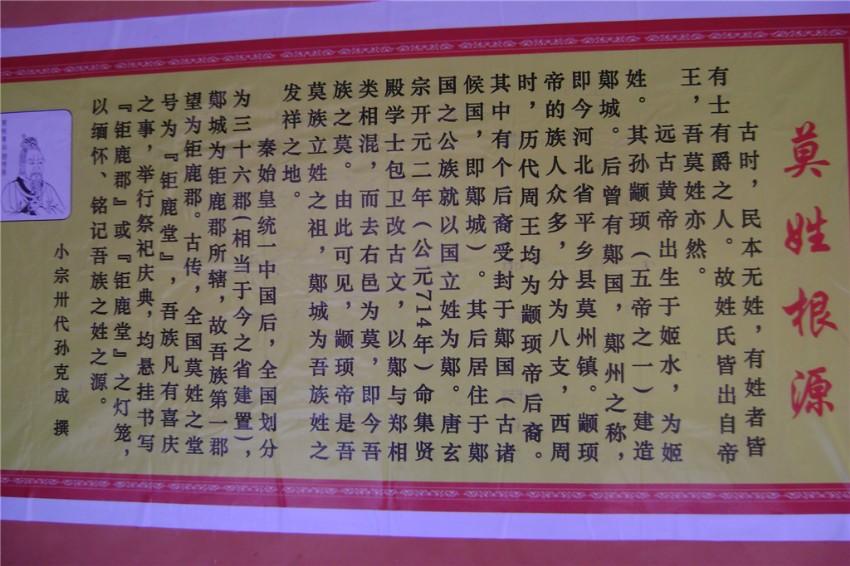 莫姓根源
古时，民本无姓，有姓者皆
有士有爵之人。故姓氏皆出自帝
王，吾莫姓亦然。
远古黄帝出生于姬水，为姬
姓。其孙颛顼（五帝之一）建造
鄚城。后曾有鄚国，鄚州之称，
即今河北省平乡县莫州镇。颛顼
帝的族人众多，分为八支，西周
时，历代周王均为颛顼帝后裔。
其中有个后裔受封于鄚国（古诸
候国，即鄚城）。其后居住于鄚
国之公族就以国立姓为鄚。唐玄
宗开元二年（公元714年）命集贤
殿学士包卫改古文，以鄚与郑相
类相混，而去右邑为莫，即今吾
族之莫。由此可见，颛顼帝是吾
莫族立姓之祖，鄚城为吾族姓之
发祥之地。
秦始皇统一中国后，全国划分
为三十六郡(相当于今之省建置)，
鄚城为钜鹿郡所辖，故吾族第一郡
望为钜鹿郡。古传，全国莫姓之堂
号为『钜鹿堂』，吾族凡有喜庆
之事，举行祭祀庆典，均悬挂书写
『钜鹿郡』或『钜鹿堂』之灯笼，
以缅怀、铭记吾族之姓之源。
小宗卅代孙克成 撰